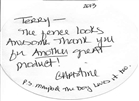 2013
Terry—
The fence looks
Awesome Thank you
for Another great
product!
Christine
P.S. Maybelle the Dog loves it too.